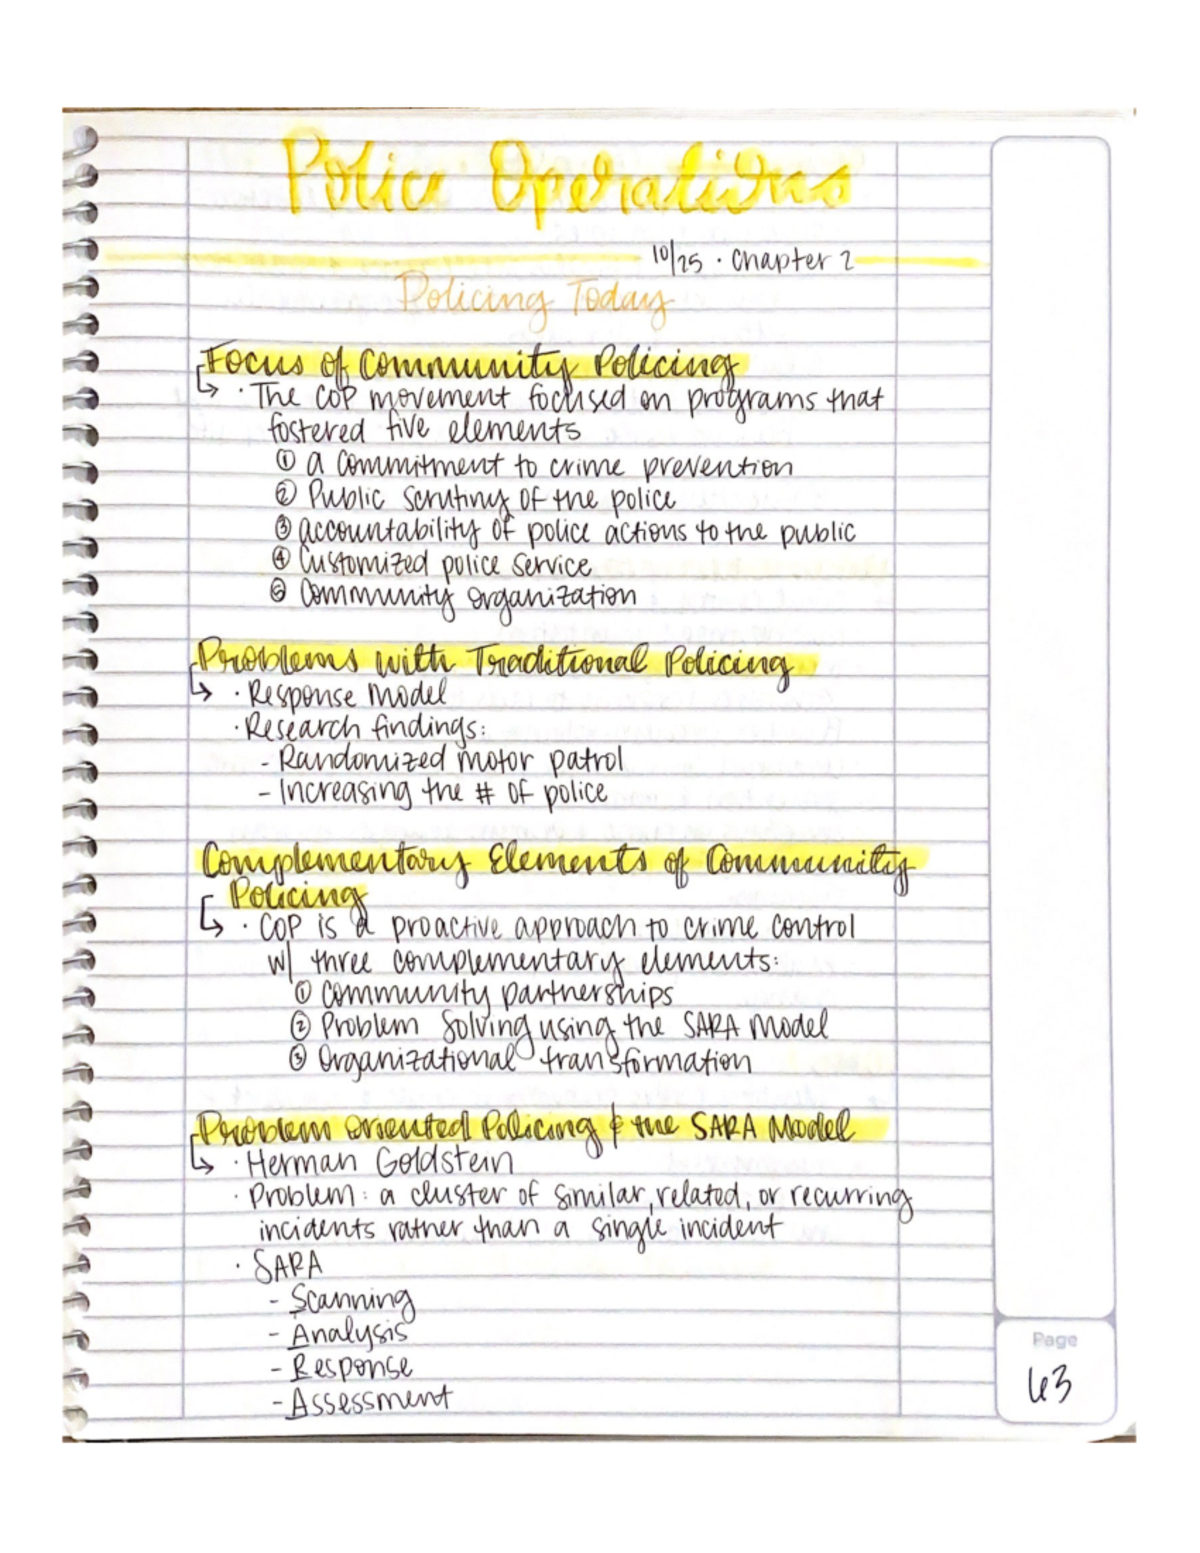 Police Operations
10/25 · Chapter 2
Policing Today
Focus of Community Policing
↳ · The COP movement focused on programs that
fostered five elements
① a commitment to crime prevention
② Public scrutiny of the police
③ accountability of police actions to the public
④ Customized police service
⑤ Community organization
Problems with Traditional Policing
↳ · Response Model
· Research findings:
- Randomized motor patrol
- Increasing the # of police
Complementary Elements of Community
Policing
↳ · COP is a proactive approach to crime control
w/ three complementary elements:
① Community partnerships
② Problem Solving using the SARA Model
③ Organizational transformation
Problem Oriented Policing & the SARA Model
↳ · Herman Goldstein
· Problem: a cluster of similar, related, or recurring
incidents rather than a single incident
· SARA
- Scanning
- Analysis
- Response
- Assessment
Page
63